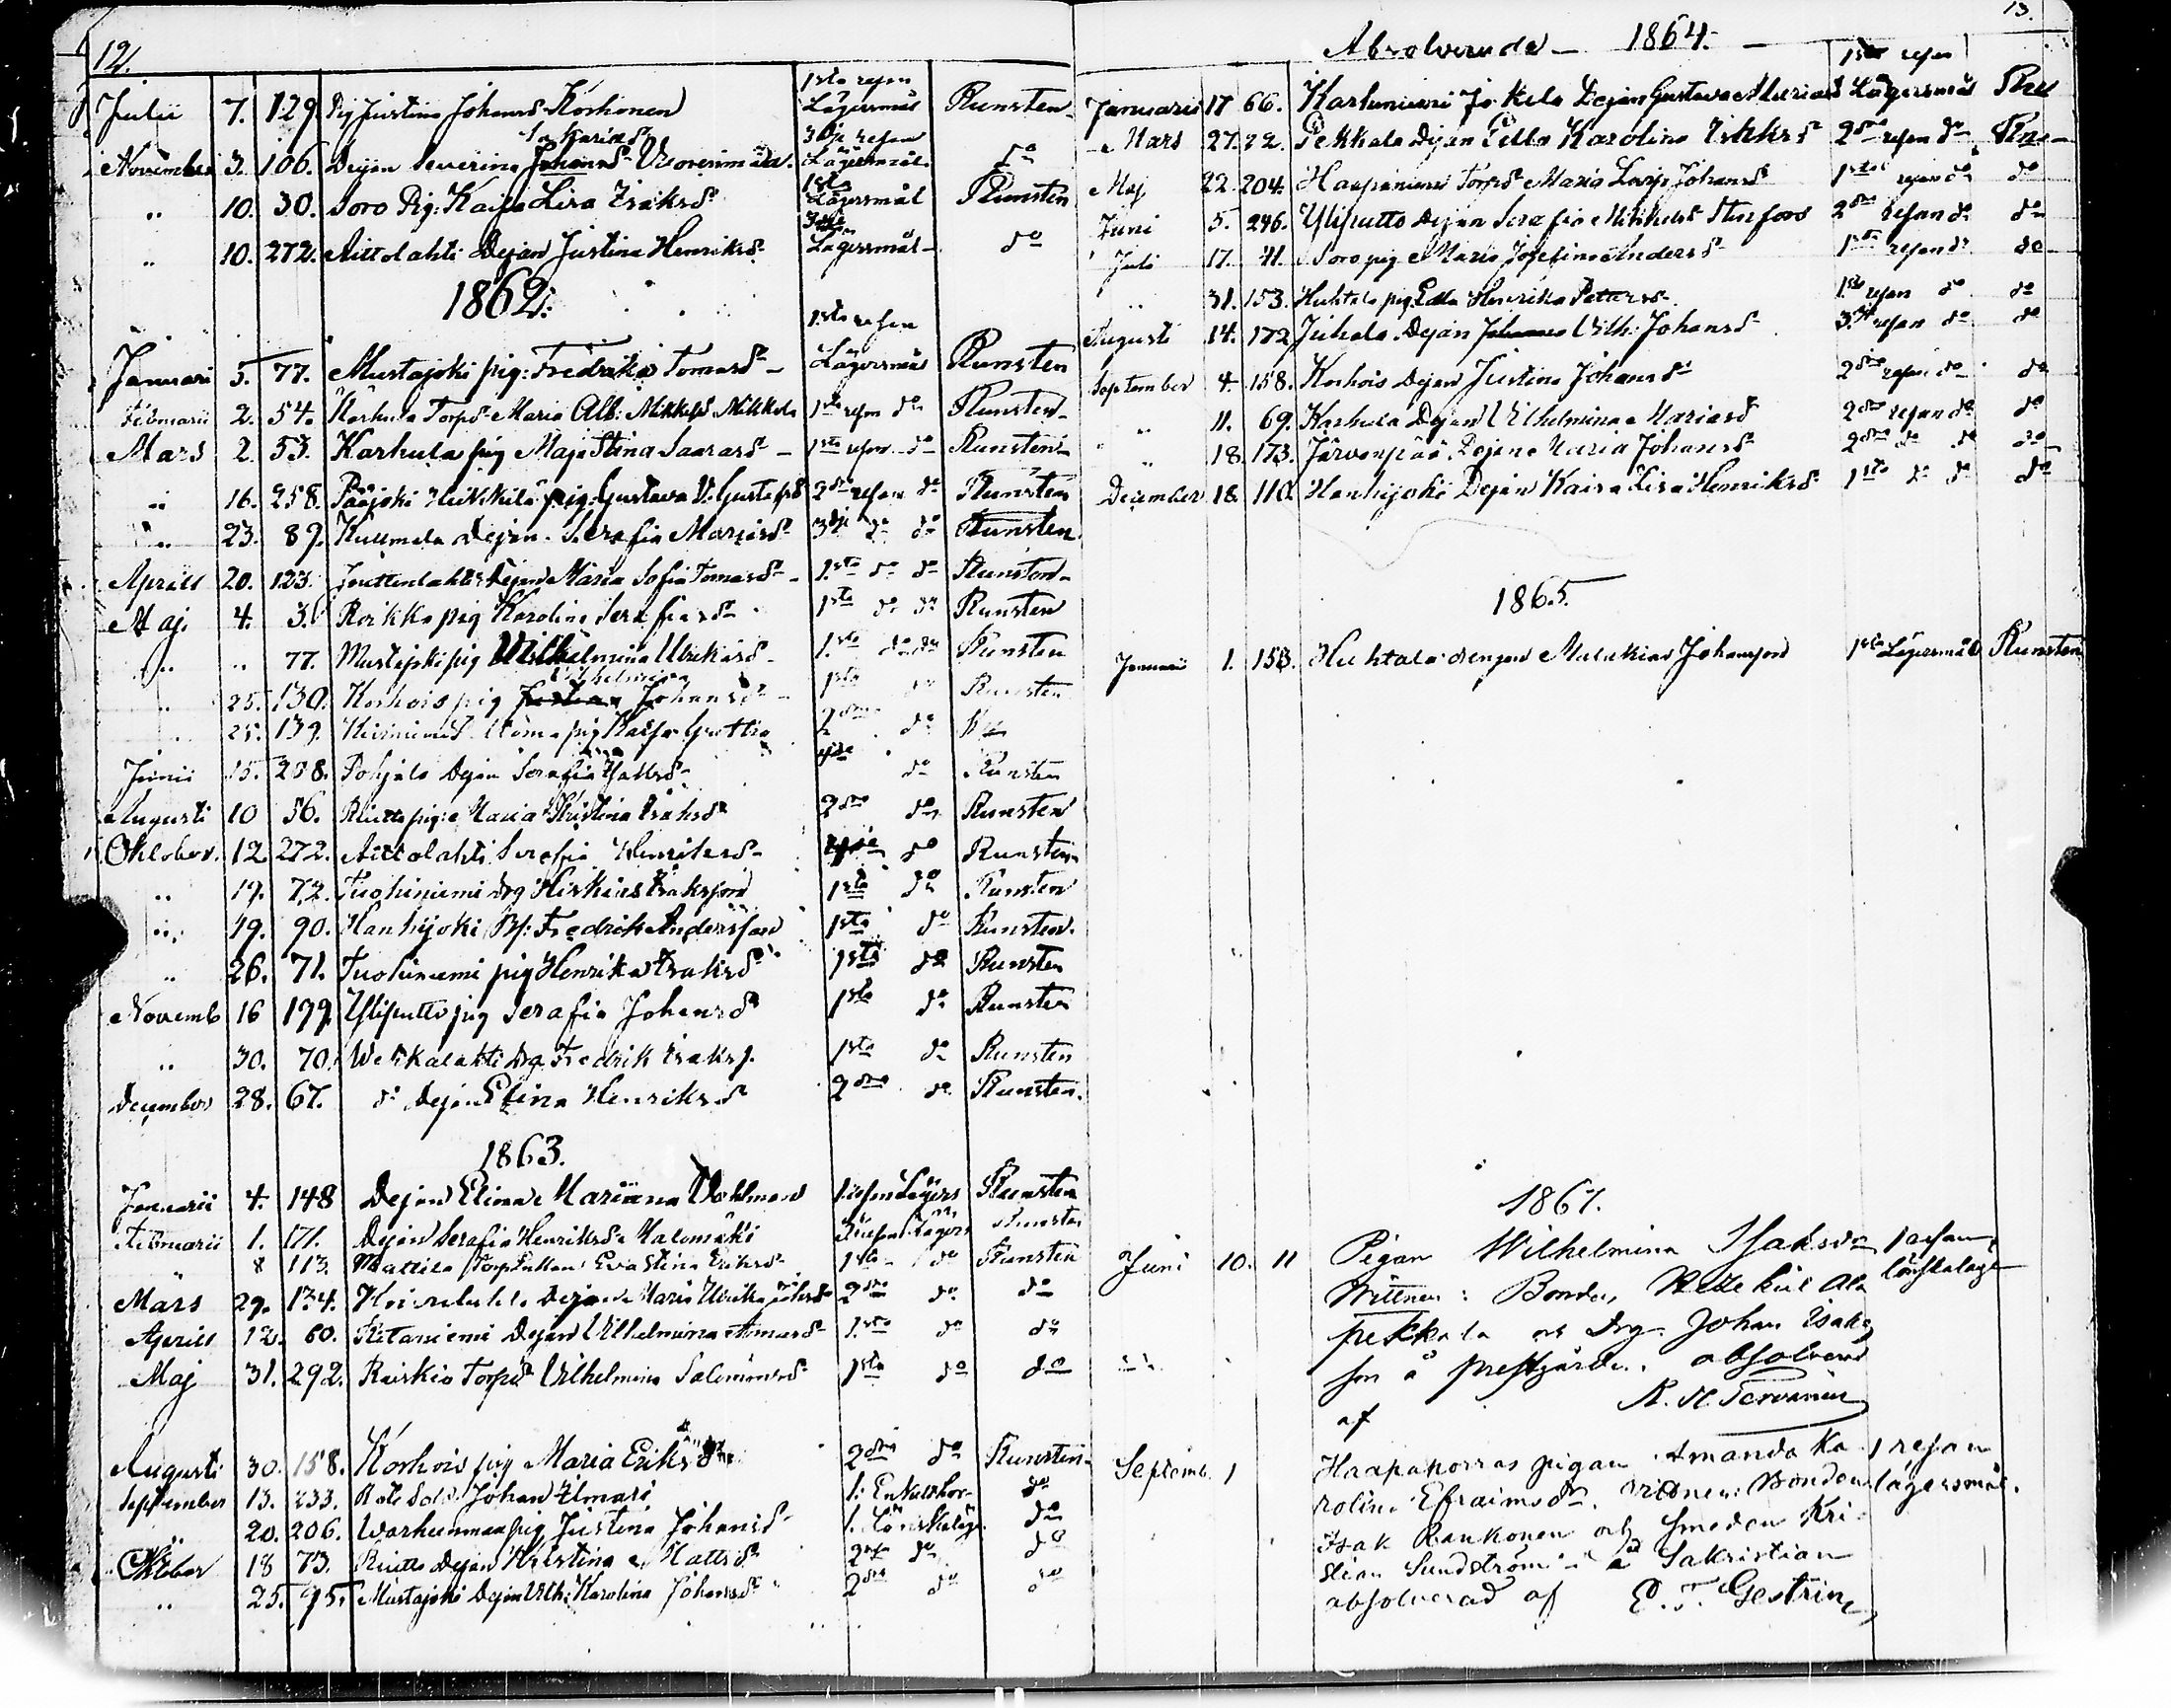 12.
Julii 7. 129. Pig Justina Johansdr Korhonen 1sta resan Lägersmål Runsten
November 3. 106. Dejan Severina Johansdr 3dje resan Lägersmål do
" 10. 30. Soro Pig: Kajsa Lisa Isaksdr 1sta Lägersmål Runsten
" 10. 272. Aittolahti Dejan Justina Henriksdr Lägersmål do
1862.
1sta resan
Januari 5. 77. Mustajoki pig: Fredrika Tomasdr Lägersmål Runsten
Februarii 2. 54. Karhula Torpdr Maria Alb: Mikkelsdr 1sta resan do Runsten
Mars 2. 53. Karhula pig Maja Stina Saarasdr 1sta resan do Runsten
" 16. 258. Pääjoki Heikkilä pig: Gustava V. Gustafsdr 2dra resan do Runsten
" 23. 89. Kullmala Dejan Serafia Mariasdr 3dje do do Runsten
Aprill 20. 123. Dejan Maria Sofia Tomasdr 1sta do do Runsten
Maj 4. 3. Rorikko pig Karolina Serafiasdr 1sta do do Runsten
" " 77. Mustajoki pig Vilhelmina Ulrikasdr 1sta do do Runsten
" 25. 130. Korhois pig Vilhelmina Johansdr 1sta do Runsten
25. 139. pig Kajsa Greta 2dra do
Junii 15. 208. Pohjala Dejan Serafia Mattsdr do Runsten
Augusti 10 56. Riutta pig: Maria Kristina Isaksdr 2dra do Runsten
Oktober 12 272. Aittolahti Serafia Henriksdr do Runsten
" 19. 72. Tuohiniemi drg Hiskias Isaksson 1sta do Runsten
" 19. 90. Hanhijoki Bs: Fredrik Andersson 1sta do Runsten
" 26. 71. Tuohiniemi pig Henrika Isaksdr 1sta do Runsten
Novemb 16 199. Yliputto pig Serafia Johansdr 1sta do Runsten
" 30. 70. Wetkalahti drg Fredrik Isakss. 1sta do Runsten
December 28. 67. do Dejan Elina Henriksdr 2dra do Runsten
1863.
Januarii 4. 148 Dejan Elina Mariana 1 resan Lägers Runsten
Februarii 1. 171. Dejan Serafia Henriksdr Halomäki resan Lägers Runsten
" 8 113. Mattila Torp Enkan Eva Stina Eriksdr 1sta do Runsten
Mars 29. 134. Dejan Maria Ulrika Johsdr 2dra do do
Aprill 12. 60. Kitaniemi Dejan Vilhelmina Tomasdr 1sta do do
Maj 31. 292. Raiskio Torpdr Vilhelmina Salomonsdr 1sta do do
Augusti 30. 158. Korhois pig Maria Eriksdr 2dra do Runsten
September 13. 233. Rote Sold. Johan Ilmari 1. Enkelt hor do
" 20. 206. Warhunmaa pig Justina Johansdr 1. Lönskaläge do
Oktober 18 73. Riutta Dejan Kristina Mattsdr 2dra do do
" 25. 75. Mustajoki Dejan Vilh: Karolina Johansdr 2dra do do
13.
Absolverade — 1864. —
1sta resan
Januarii 17 66. Karhuniemi Jokela Dejan Gustava Mariasdr Lägersmål Run
Mars 27. 22. Pekkala Dejan Edla Karolina Eriksdr 2dra resan do Run
Maj 22. 204. Haapaniemi Torpdr Maria Lovisa Johansdr 1sta resan do do
Juni 5. 246. Yliputto Dejan Serafia Mikkelsdr Stenfors 2dra resan do do
Juli 17. 41. Soro pig Maria Josefina Andersdr 1sta resan do do
" 31. 153. Huhtala pig Edla Henrika Pettersdr 1sta resan do do
Augusti 14. 172 Juhola Dejan Vilh: Johansdr 3dje resan do do
September 4. 158. Korhois Dejan Justina Johansdr 2dra resan do do
" 11. 69. Karhula Dejan Vilhelmina Mariasdr 2dra resan do do
" 18. 173. Järvenpää Dejan Maria Johansdr 2dra do do do
December 18. 110. Hanhijoki Dejan Kaisa Lisa Henriksdr 1sta do do do
1865.
Januari 1. 153. Huhtala drengen Malakias Johansson 1sta Lägersmål Runsten
1867.
Juni 10. 11 Pigan Wilhelmina Isaksdr 1 resan
Wittnen: Bonden Hezekiel Ala lönskaläge
pekkala och Drg. Johan Isaks
son å prestgården. absolverad
af
Septemb. 1 Haapaporras pigan Amanda Ka 1 resan
rolina Efraimsdr. Vittnen: Bonden lägersmål.
Isak Rankonen och Smeden Kri
stian Sundström i Sakristian
absolverad af E. T. Gestrin